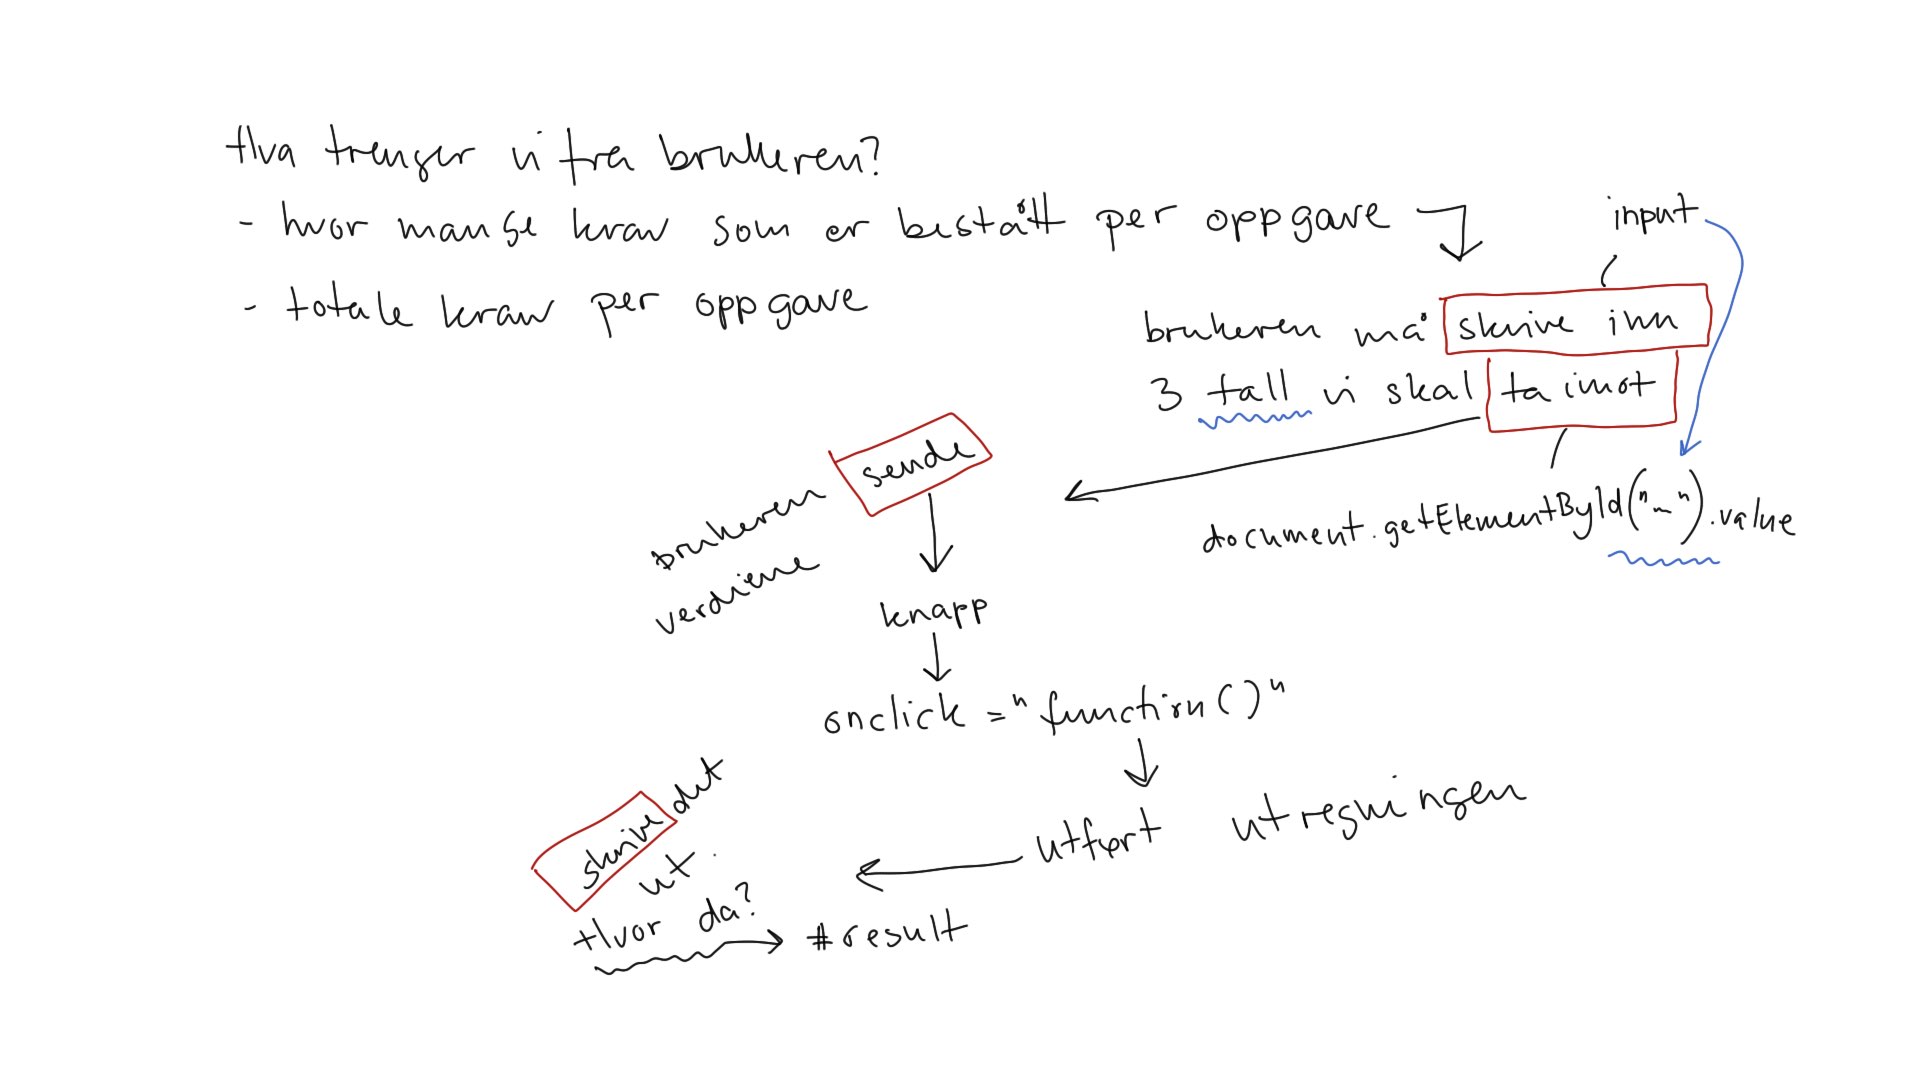 Hva trenger vi fra brukeren?
- hvor mange krav som er bestått per oppgave
- totale krav per oppgave
input
brukeren må skrive inn
3 tall vi skal ta imot
document.getElementById("_").value
brukeren sende
verdiene
knapp
onclick = "function()"
utført utregningen
skrive det
ut.
Hvor da?
#result